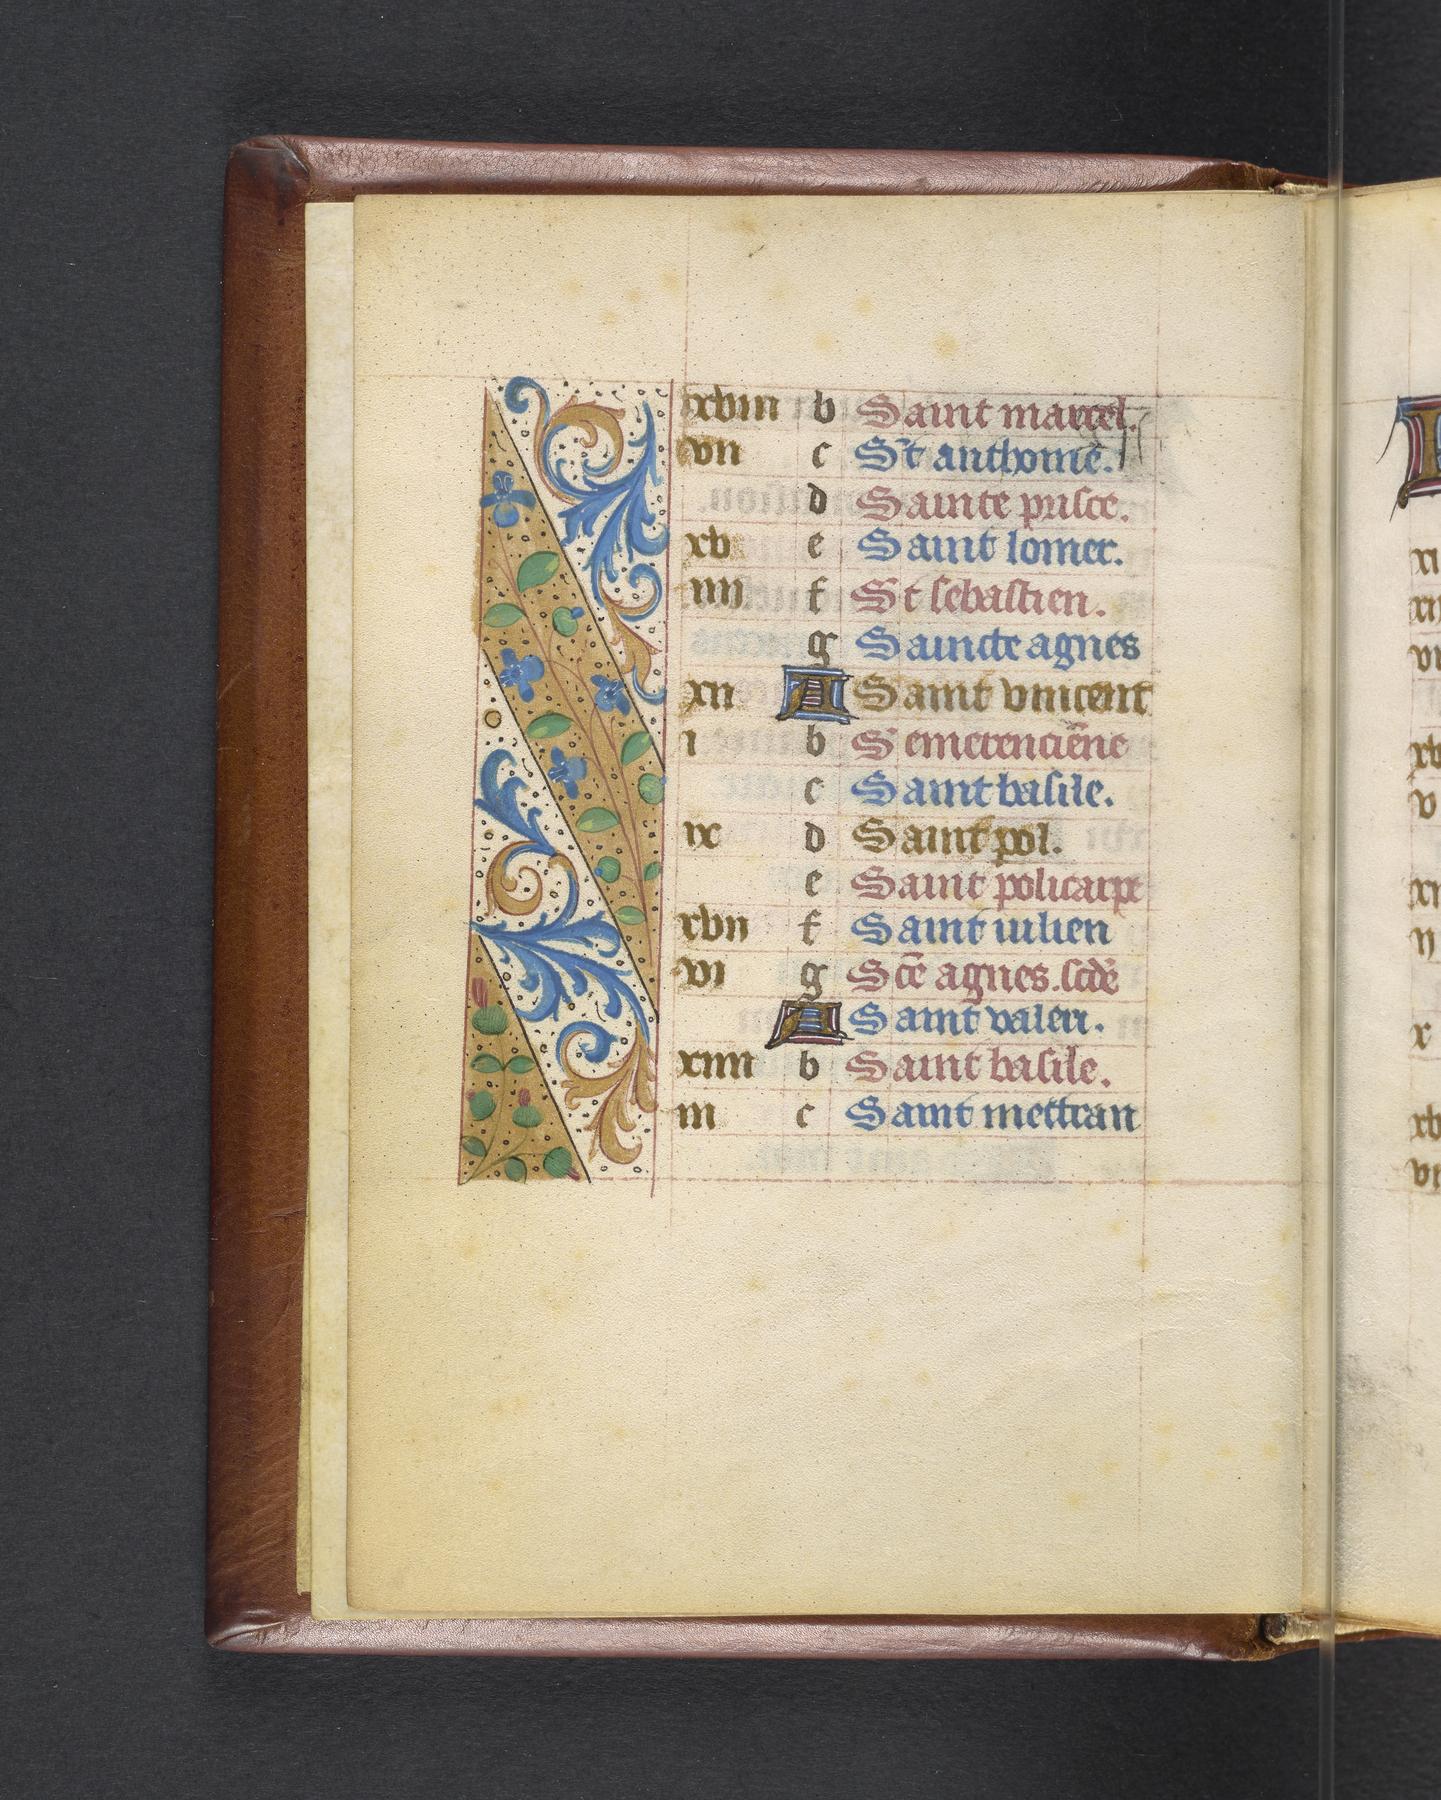 xviii b Saint marcel.
vii c S't anthoine.
d Sainte prisce.
xv e Saint lomer.
iiii f S't sebastien.
g Saincte agnes
xii A Saint vincent
i b S' emerenciẽne
c Saint basile.
ix d Saint pol.
e Saint policarpe
xvii f Saint iulien
vi g Scẽ agnes. scdẽ
A Saint valeri.
xiiii b Saint basile.
iii c Saint mettran